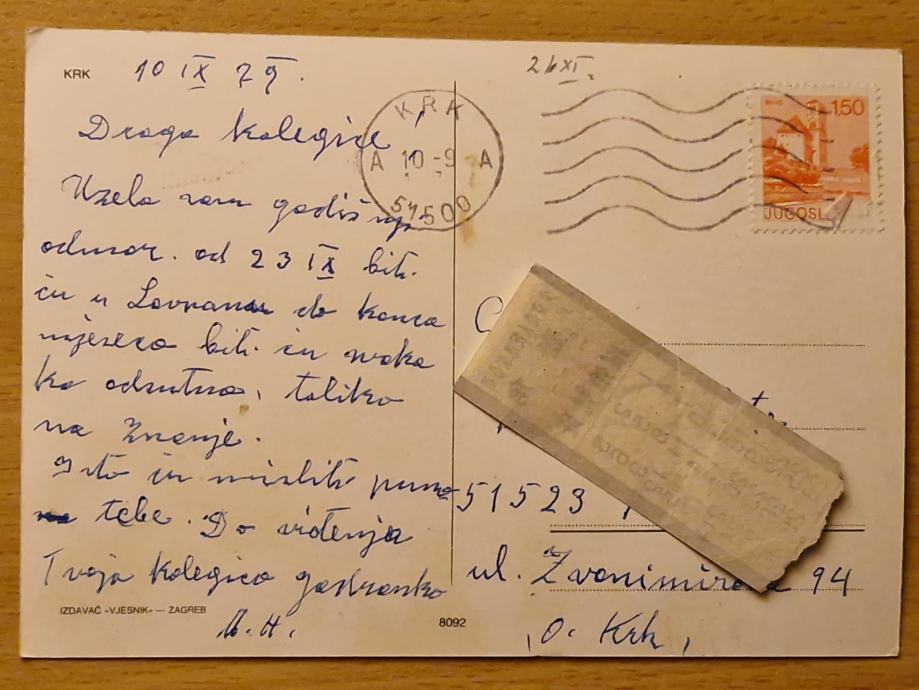 KRK
10 IX 79.
24 XI.
KRK
A 10-9 A
51500
1,50
JUGOSL
Draga kolegice,
Uzela sam godišnji
odmor. od 23 IX biti
ću u Lovranu do konca
mjeseca biti ću svaka
ko odsutna, toliko
na znanje.
Isto ću misliti puno
tebe. Do viđenja
Tvoja kolegica gastronomka
M.H.
51523
ul. Zvonimirova 94
o. Krk,
IZDAVAČ »VJESNIK« — ZAGREB
8092